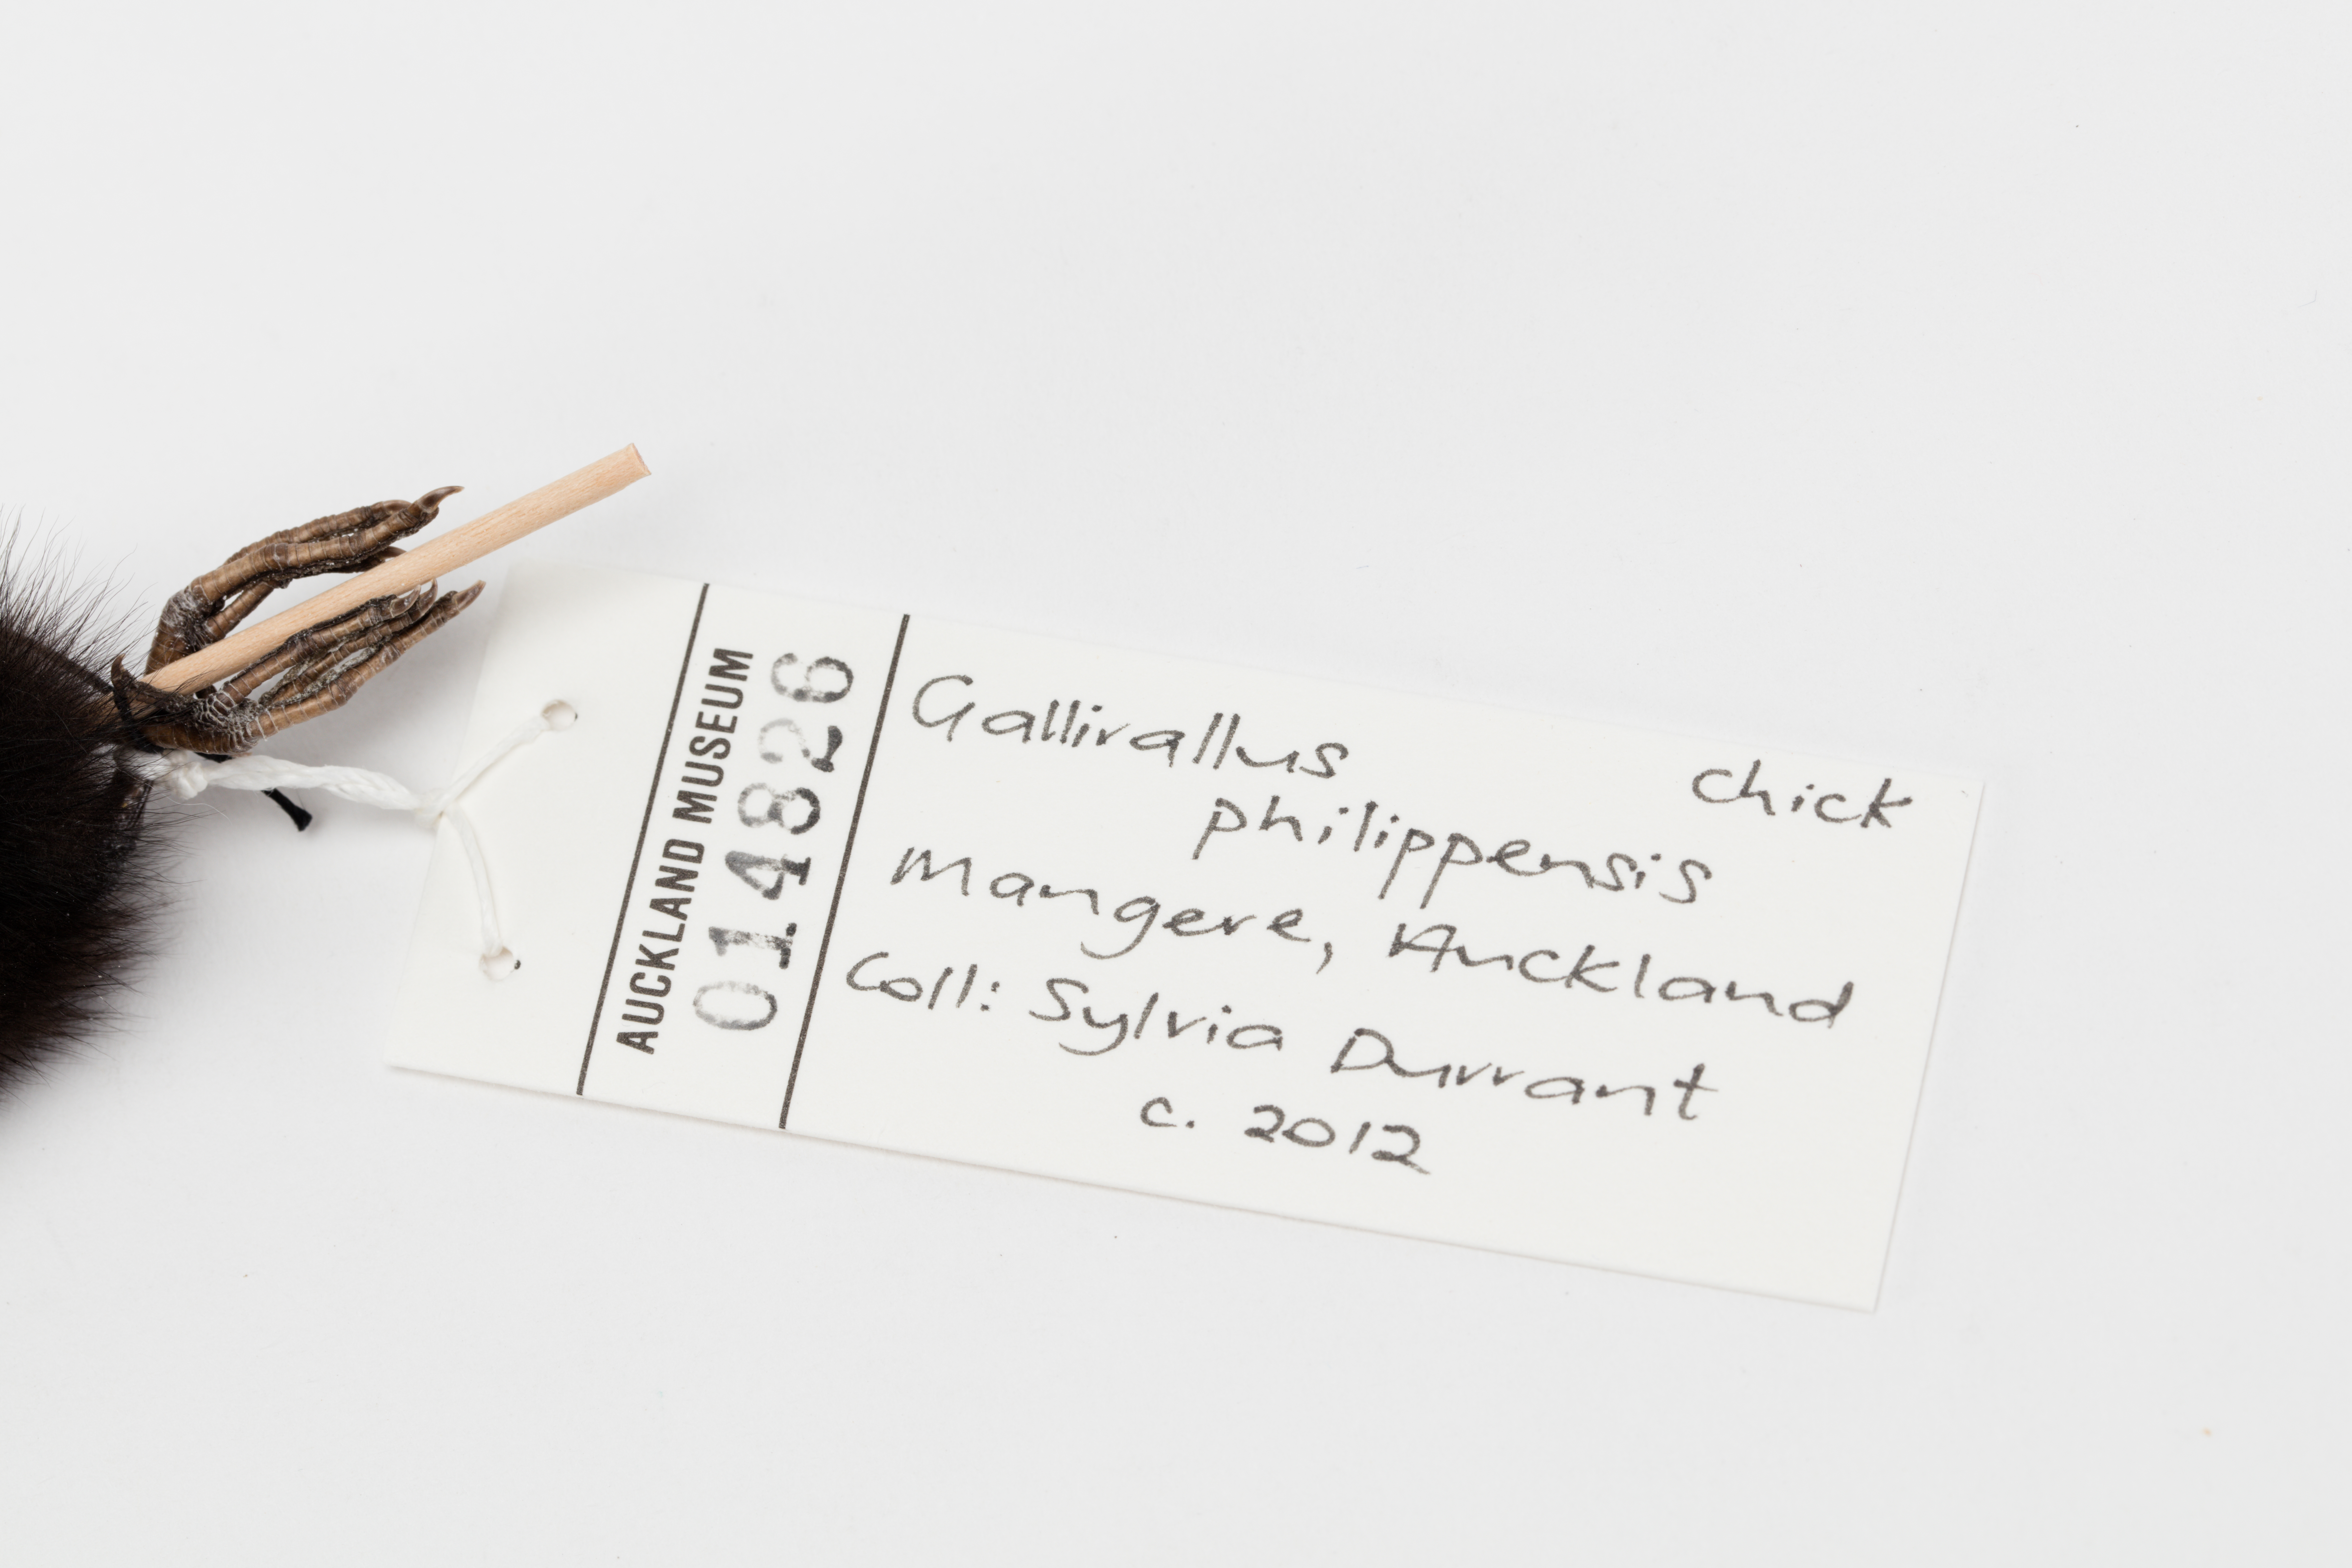 AUCKLAND MUSEUM
014826
Gallirallus chick
philippensis
Mangere, Auckland
Coll: Sylvia Durrant
c. 2012